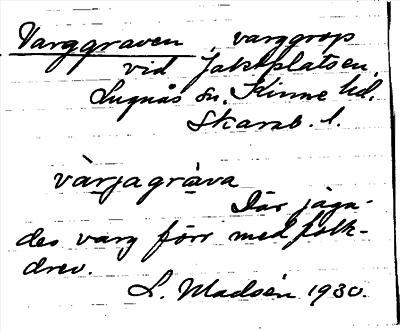 Varggraven varggrop
vid Jaktplatsen,
Lugnås sn. Kinne hd.
Skarab. l.
värjagräva
Där jaga-
des varg förr med folk-
drev.
L. Madsén 1930.